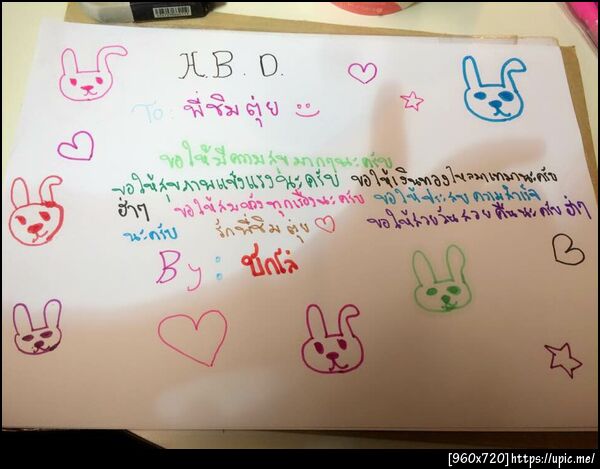 H.B.D.
To: พี่ชิมตุ่ย
ขอให้มีความสุขมากๆนะครับ
ขอให้สุขภาพแข็งแรงนะครับ ขอให้เงินทองไหลมาเทมานะครับ
ฮ่าๆ ขอให้สมหวังทุกเรื่องนะครับ ขอให้ประสบความสำเร็จ
นะครับ รักพี่ชิมตุ่ย ขอให้สวยวันสวยคืนนะครับ ฮ่าๆ
By: ชักโล่
[960x720]https://upic.me/